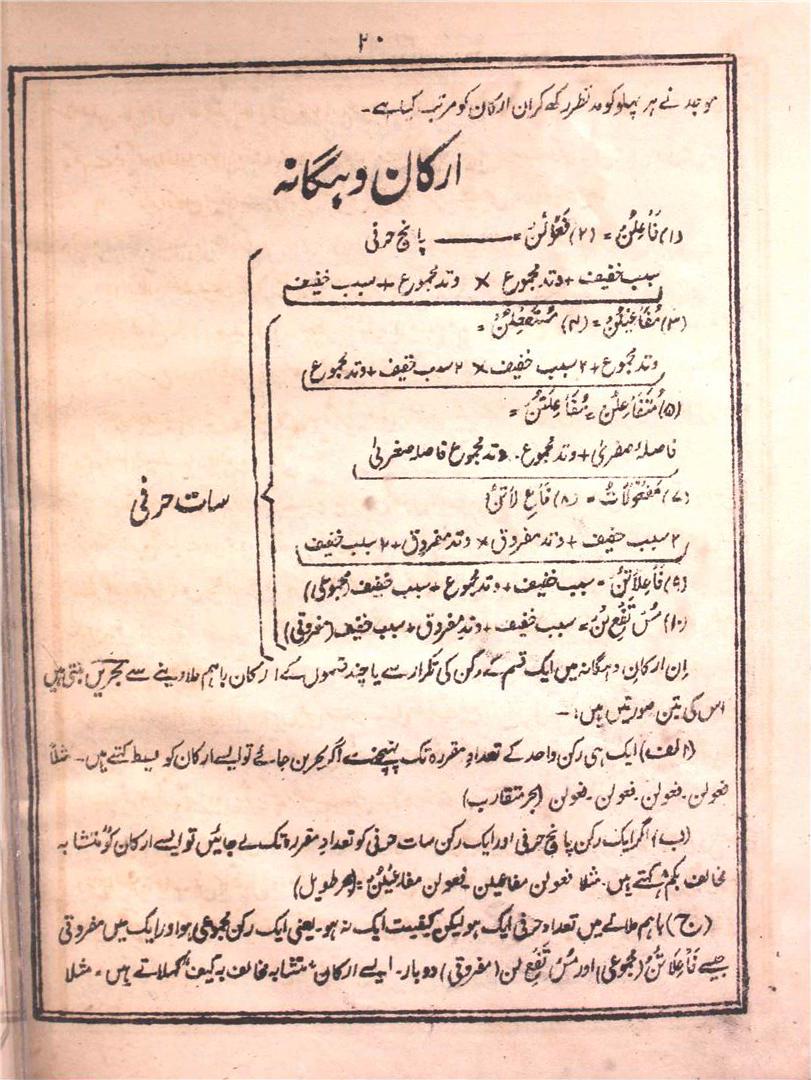 ۲۰
موجد نے ہر پہلو کو مدنظر رکھ کر ان ارکان کو مرتب کیا ہے۔
ارکان دہگانہ
(۱) فَاعِلُنْ = (۲) فَعُوْلُنْ = ——— پانچ حرفی
سبب خفیف + وتد مجموع × وتد مجموع + سبب خفیف
(۳) مَفَاعِیْلُنْ = (۴) مُسْتَفْعِلُنْ =
وتد مجموع + ۲ سبب خفیف × ۲ سبب خفیف + وتد مجموع
(۵) مُتَفَاعِلُنْ = مُفَاعِلَتُنْ =
فاصلۂ صغریٰ + وتد مجموع۔ وتد مجموع فاصلہ صغریٰ
سات حرفی
(۷) مَفْعُوْلَاتُ = (۸) فَاعِ لَاتُنْ
۲ سبب خفیف + وتد مفروق × وتد مفروق + ۲ سبب خفیف
(۹) فَاعِلَاتُنْ = سبب خفیف + وتد مجموع + سبب خفیف (مجموعی)
(۱۰) مُسْ تَفْعِ لُنْ = سبب خفیف + وتدِ مفروق + سبب خفیف (مفروقی)
اِن ارکانِ دہگانہ میں ایک قسم کے رکن کی تکرار سے یا چند قسموں کے ارکان باہم ملا دینے سے بحریں بنتی ہیں
اس کی تین صورتیں ہیں:۔
(الف) ایک ہی رکن واحد کے تعدادِ مقررہ تک پہنچنے اگر بحر بن جائے تو ایسے ارکان کو بسیط کہتے ہیں۔ مثلاً
فعولن۔ فعولن۔ فعولن۔ فعولن (بحر متقارب)
(ب) اگر ایک رکن پانچ حرفی اور ایک رکن سات حرفی کو تعدادِ مقررہ تک لے جائیں تو ایسے ارکان کو متشابہ
مخالف بکم کہتے ہیں۔ مثلاً فعولن مفاعیلن فعولن مفاعیلن = (بحر طویل)
(ج) باہم ملانے میں تعداد حرفی ایک ہو لیکن کیفیت ایک نہ ہو۔ یعنی ایک رکن مجموعی ہو اور ایک میں مفروقی
جیسے فَاعِلَاتُنْ (مجموعی) اور مُسْ تَفْعِ لن (مفروقی) دوبار۔ ایسے ارکان "متشابہ مخالف بہ کیف" کہلاتے ہیں۔ مثلاً